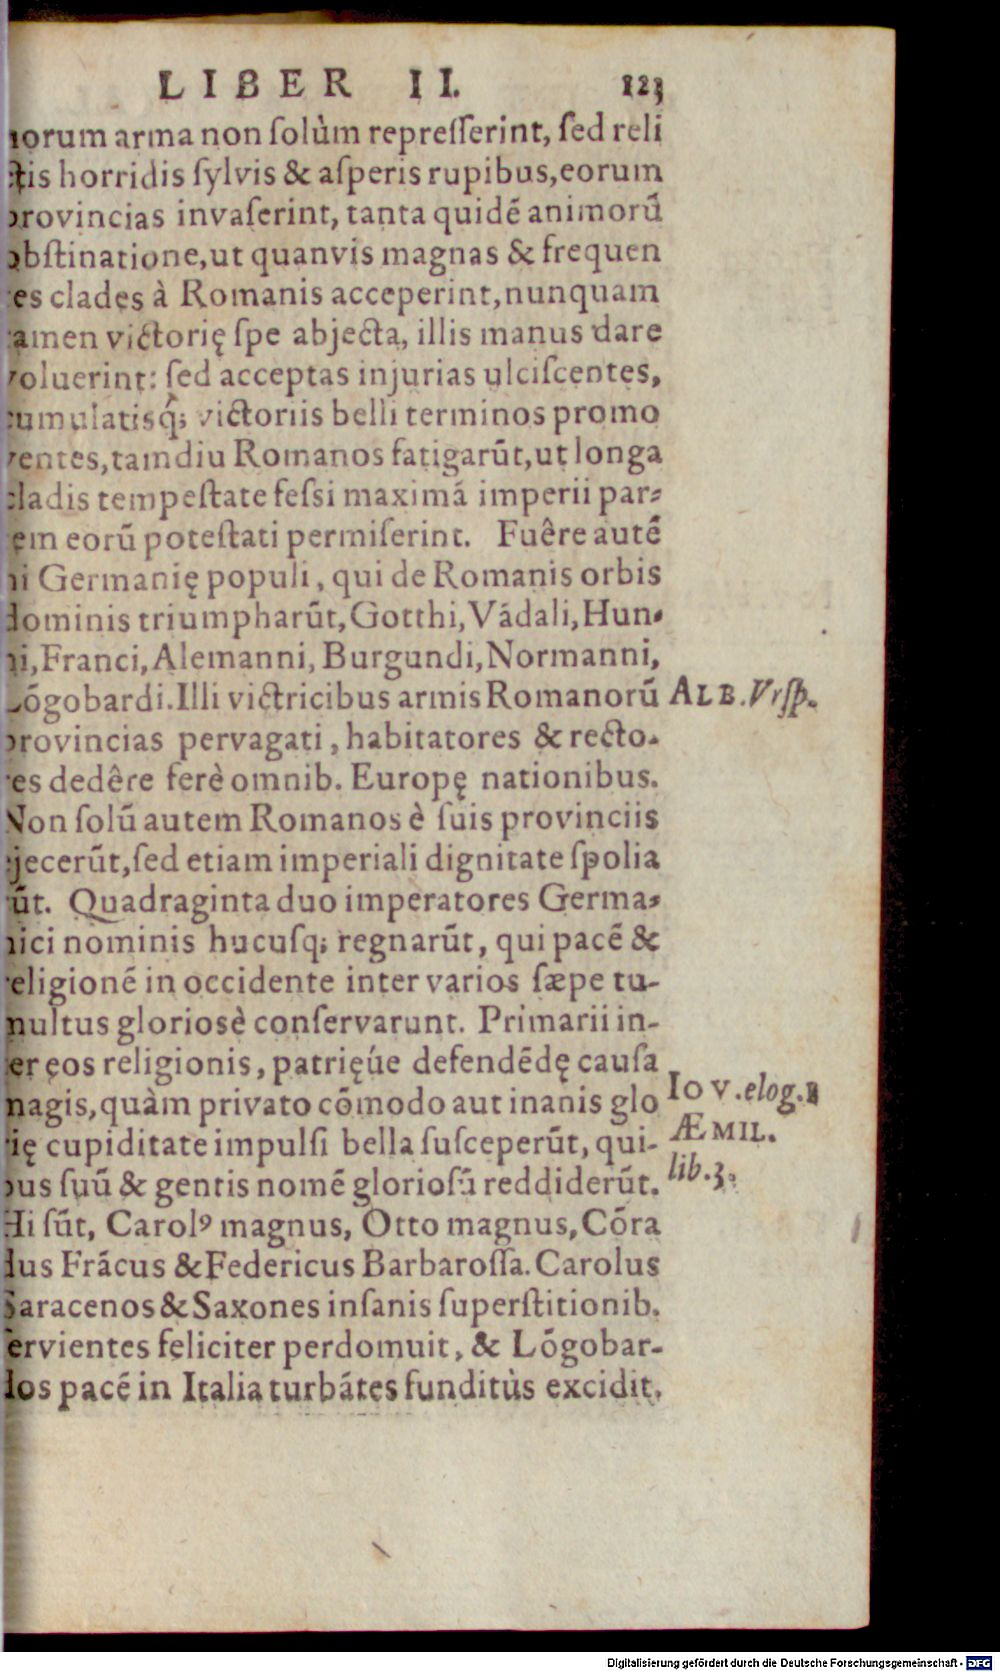 LIBER II. 123
norum arma non ſolùm repreſſerint, ſed reli
ctis horridis ſylvis & aſperis rupibus, eorum
provincias invaſerint, tanta quidē animorū
obſtinatione, ut quanvis magnas & frequen
tes clades à Romanis acceperint, nunquam
tamen victorię ſpe abjecta, illis manus dare
voluerint: ſed acceptas injurias ulciſcentes,
cumulatisq́; victoriis belli terminos promo
ventes, tamdiu Romanos fatigarūt, ut longa
cladis tempeſtate feſſi maximā imperii par-
tem eorū poteſtati permiſerint. Fuêre autē
hi Germanię populi, qui de Romanis orbis
dominis triumpharūt, Gotthi, Vādali, Hun-
ni, Franci, Alemanni, Burgundi, Normanni,
Lōgobardi. Illi victricibus armis Romanorū
ALB. Vrſp.
provincias pervagati, habitatores & recto-
res dedêre ferè omnib. Europę nationibus.
Non ſolū autem Romanos è ſuis provinciis
ejecerūt, ſed etiam imperiali dignitate ſpolia
rūt. Quadraginta duo imperatores Germa-
nici nominis hucuſq; regnarūt, qui pacē &
religionē in occidente inter varios ſæpe tu-
multus glorioſè conſervarunt. Primarii in-
ter eos religionis, patrięúe defendēdę cauſa
magis, quàm privato cōmodo aut inanis glo
Iov. elog.
rię cupiditate impulſi bella ſuſceperūt, qui-
ÆMIL.
bus ſuū & gentis nomē glorioſū reddiderūt.
lib. 3.
Hi ſūt, Carolꝰ magnus, Otto magnus, Cōra
dus Frācus & Federicus Barbaroſſa. Carolus
Saracenos & Saxones inſanis ſuperſtitionib.
ſervientes feliciter perdomuit, & Lōgobar-
dos pacē in Italia turbātes funditùs excidit,
Digitalisierung gefördert durch die Deutsche Forschungsgemeinschaft - DFG